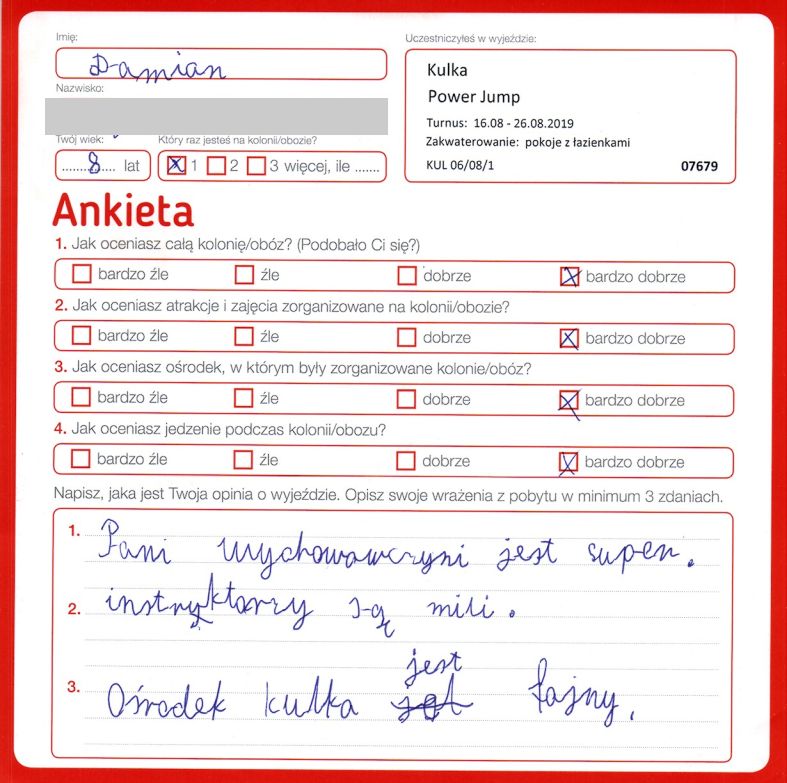 Imię:
Damian
Nazwisko:
Twój wiek:
8 lat
Który raz jesteś na kolonii/obozie?
1 2 3 więcej, ile .......
Uczestniczyłeś w wyjeździe:
Kulka
Power Jump
Turnus: 16.08 - 26.08.2019
Zakwaterowanie: pokoje z łazienkami
KUL 06/08/1 07679
Ankieta
1. Jak oceniasz całą kolonię/obóz? (Podobało Ci się?)
bardzo źle źle dobrze bardzo dobrze
2. Jak oceniasz atrakcje i zajęcia zorganizowane na kolonii/obozie?
bardzo źle źle dobrze bardzo dobrze
3. Jak oceniasz ośrodek, w którym były zorganizowane kolonie/obóz?
bardzo źle źle dobrze bardzo dobrze
4. Jak oceniasz jedzenie podczas kolonii/obozu?
bardzo źle źle dobrze bardzo dobrze
Napisz, jaka jest Twoja opinia o wyjeździe. Opisz swoje wrażenia z pobytu w minimum 3 zdaniach.
1. Pani wychowawczyni jest super.
2. instryktorzy są mili.
jest
3. Ośrodek kulka fajny.